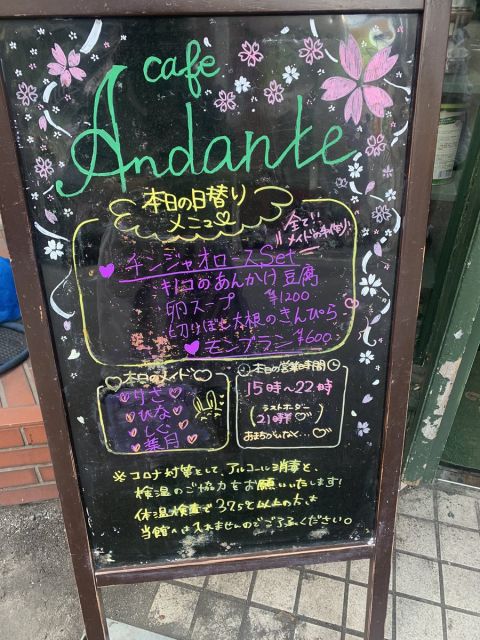 cafe
Andante
本日の日替り
メニュー
全て!!
メイドの手作り
チンジャオロースSet
キノコのあんかけ豆腐
卵スープ ¥1200
切りぼし大根のきんぴら
モンブラン ¥600
本日のメイド
りさ
ひな
しぐ
葉月
本日の営業時間
15時〜22時
ラストオーダー
21時
おまちがいなく…
※コロナ対策として、アルコール消毒と、
検温のご協力をお願いいたします!
体温検査で37.5℃以上の方は
当館へは入れませんのでご了承ください。